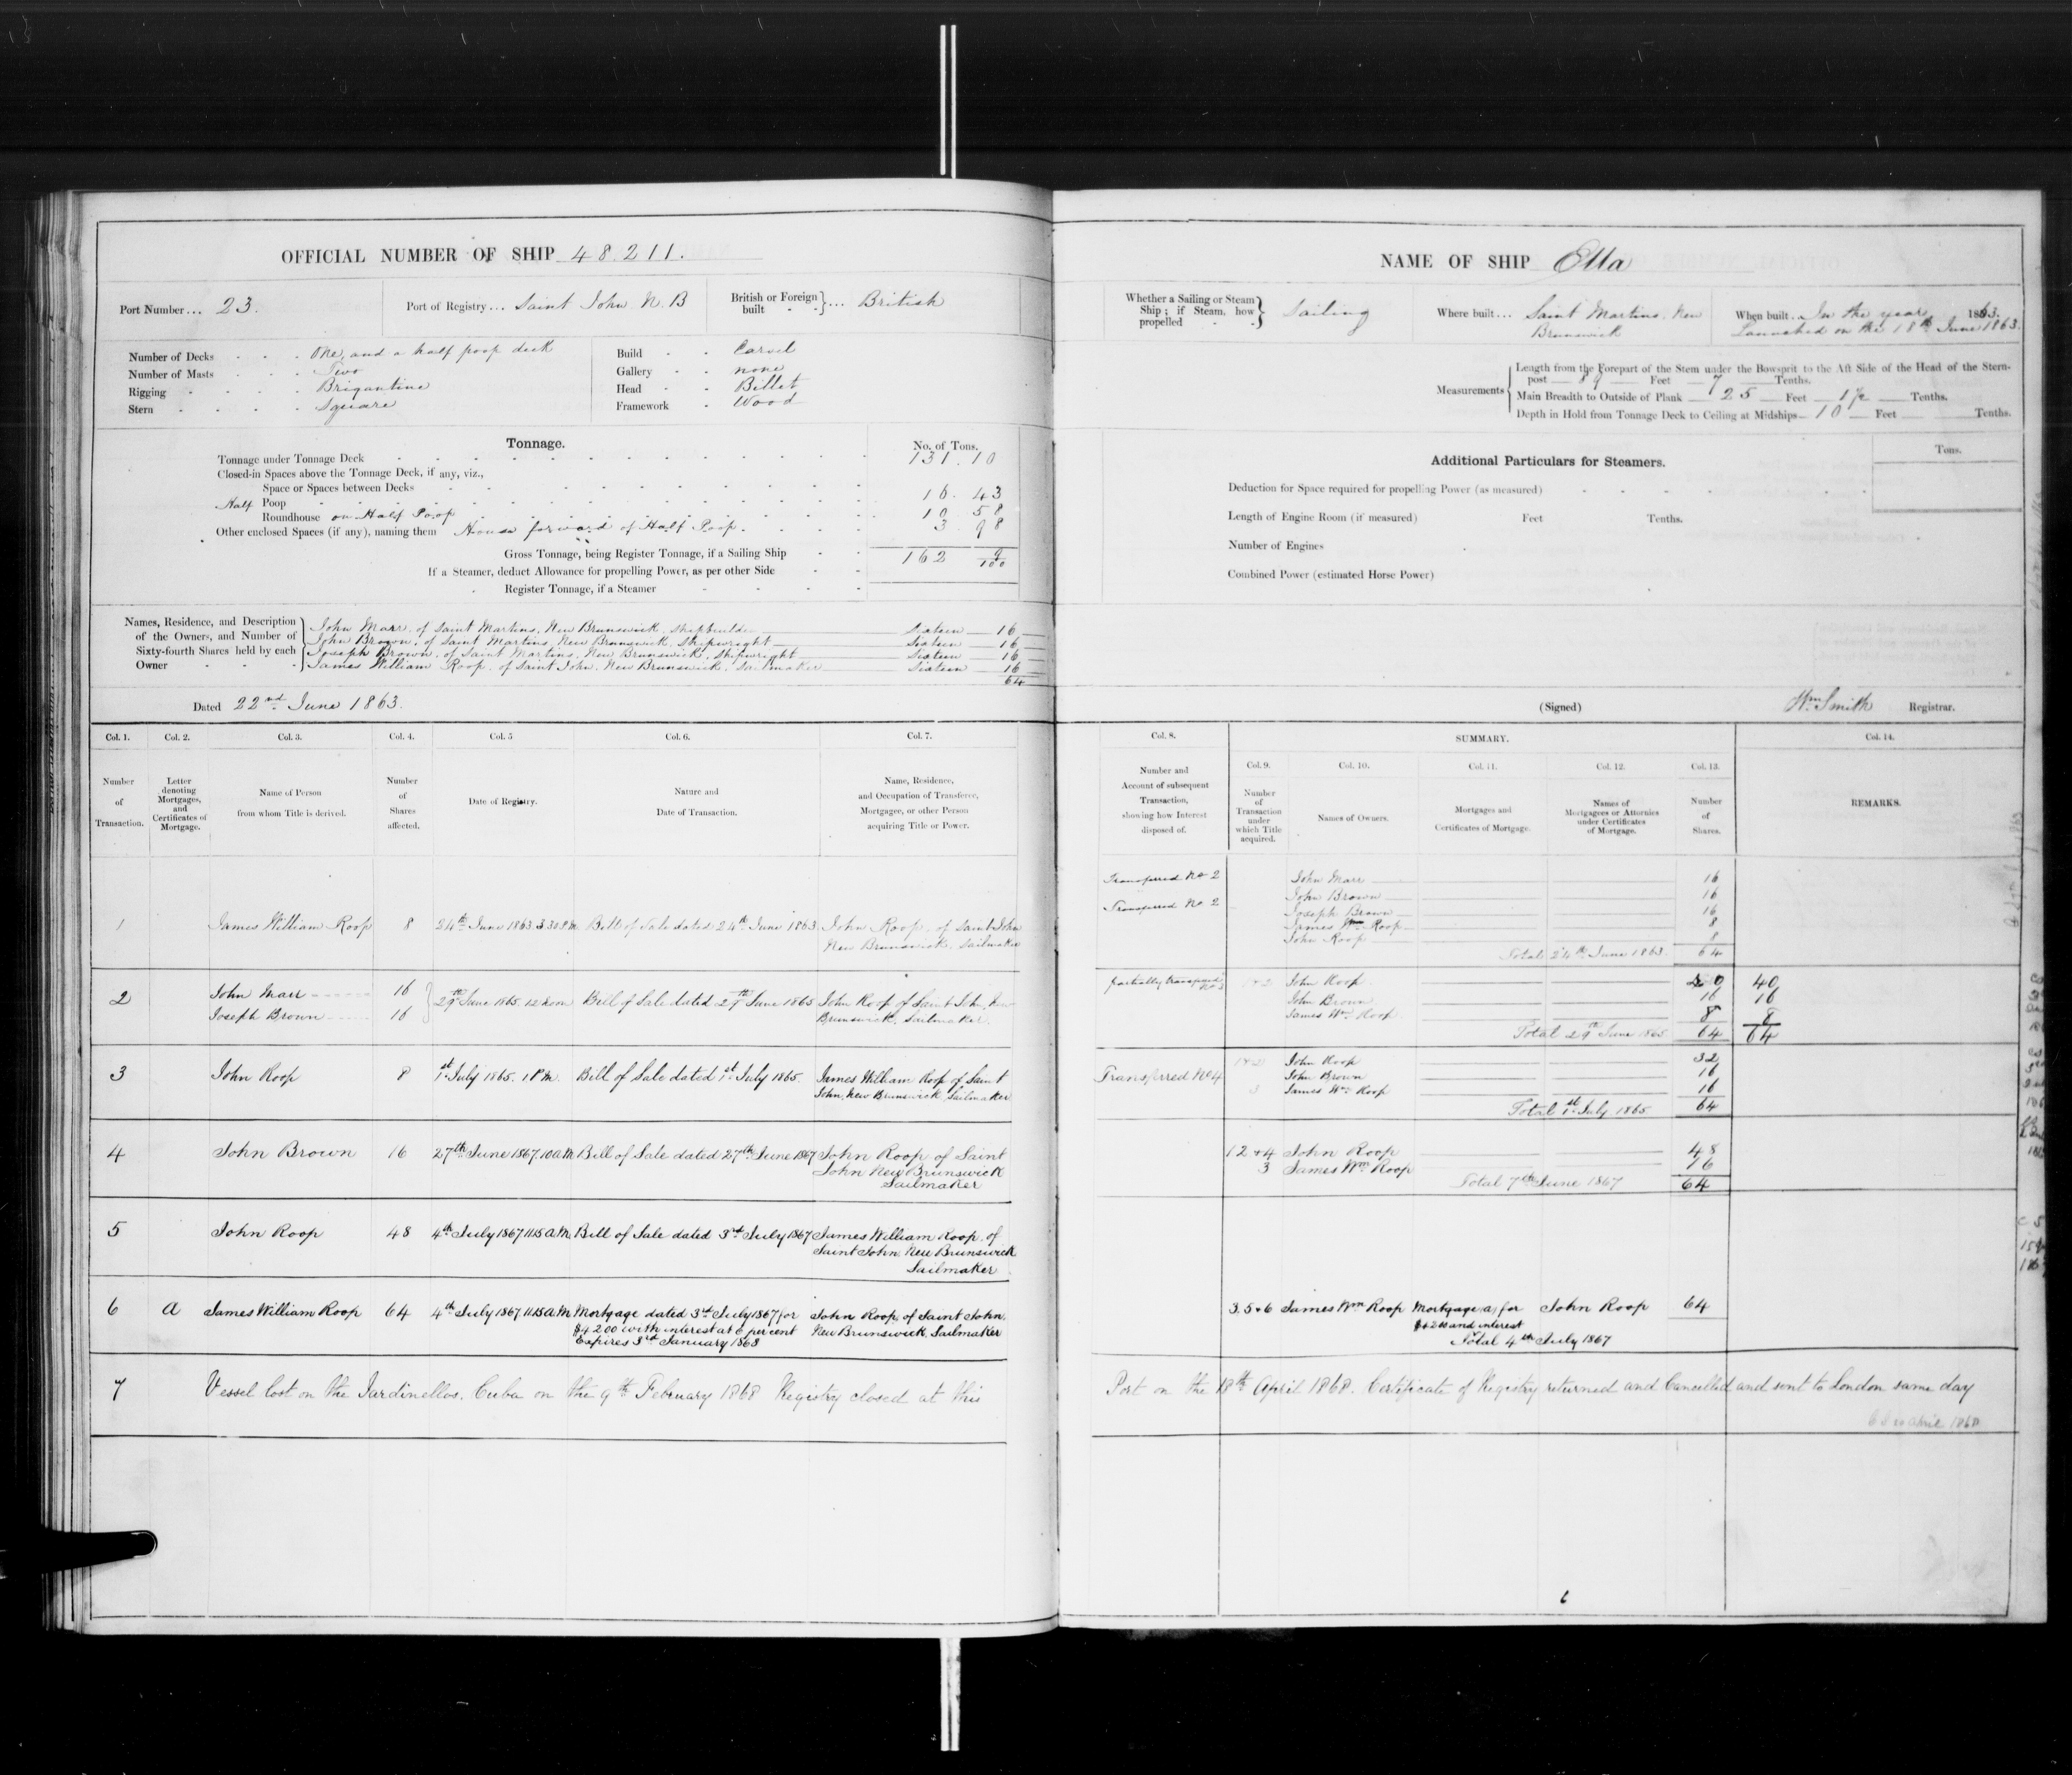 OFFICIAL NUMBER OF SHIP 48.211.
Port Number... 23.
Port of Registry... Saint John N.B
British or Foreign built } ... British
Number of Decks - - - One, and a half poop deck
Number of Masts - - - Two
Rigging - - - Brigantine
Stern - - - - Square
Build - - Carvel
Gallery - - none
Head - - Billet
Framework - Wood
Tonnage.
No. of Tons.
Tonnage under Tonnage Deck 131.10
Closed-in Spaces above the Tonnage Deck, if any, viz.,
Space or Spaces between Decks
Half Poop 16.43
Roundhouse on Half Poop 10 58
Other enclosed Spaces (if any), naming them House forward of Half Poop. 3 98
Gross Tonnage, being Register Tonnage, if a Sailing Ship 162 9/100
If a Steamer, deduct Allowance for propelling Power, as per other Side
Register Tonnage, if a Steamer
Names, Residence, and Description of the Owners, and Number of Sixty-fourth Shares held by each Owner
John Marr, of Saint Martins, New Brunswick, Shipbuilder Sixteen 16
John Brown, of Saint Martins, New Brunswick, Shipwright Sixteen 16
Joseph Brown, of Saint Martins, New Brunswick, Shipwright Sixteen 16
James William Roop, of Saint John, New Brunswick, Sailmaker Sixteen 16
64
Dated 22nd June 1863.
Col. 1. Col. 2. Col. 3. Col. 4. Col. 5 Col. 6. Col. 7.
Number of Transaction.
Letter denoting Mortgages, and Certificates of Mortgage.
Name of Person from whom Title is derived.
Number of Shares affected.
Date of Registry.
Nature and Date of Transaction.
Name, Residence, and Occupation of Transferee, Mortgagee, or other Person acquiring Title or Power.
1 James William Roop 8 24th June 1863 3.30 P.M. Bill of Sale dated 24th June 1863 John Roop, of Saint John
New Brunswick, Sailmaker
2 John Marr 16 29th June 1865. 12 noon Bill of Sale dated 29th June 1865 John Roop of Saint John, New
Joseph Brown 16 Brunswick, Sailmaker.
3 John Roop 8 1st July 1865. 1 P.M. Bill of Sale dated 1st July 1865. James William Roop of Saint
John, New Brunswick, Sailmaker
4 John Brown 16 27th June 1867. 10 A.M. Bill of Sale dated 27th June 1867 John Roop of Saint
John New Brunswick
Sailmaker
5 John Roop 48 4th July 1867. 11.15 A.M. Bill of Sale dated 3rd July 1867 James William Roop, of
Saint John, New Brunswick
Sailmaker
6 A James William Roop 64 4th July 1867. 11.15 A.M. Mortgage dated 3rd July 1867 for John Roop, of Saint John,
$4200 with interest at 6 per cent New Brunswick, Sailmaker
Expires 3rd January 1868
7 Vessel lost on the Jardinellos, Cuba on the 9th February 1868 Registry closed at this
NAME OF SHIP Etta
Whether a Sailing or Steam Ship; if Steam, how propelled } Sailing
Where built... Saint Martins, New
Brunswick
When built... In the year 1863.
Launched on the 18th June 1863.
Measurements
Length from the Forepart of the Stem under the Bowsprit to the Aft Side of the Head of the Stern-
post 89 Feet 7 Tenths.
Main Breadth to Outside of Plank 25 Feet 1 1/2 Tenths.
Depth in Hold from Tonnage Deck to Ceiling at Midships 10 Feet Tenths.
Additional Particulars for Steamers.
Tons.
Deduction for Space required for propelling Power (as measured)
Length of Engine Room (if measured) Feet Tenths.
Number of Engines
Combined Power (estimated Horse Power)
(Signed) Wm Smith Registrar.
Col. 8. SUMMARY. Col. 14.
Col. 9. Col. 10. Col. 11. Col. 12. Col. 13.
Number and Account of subsequent Transaction, showing how Interest disposed of.
Number of Transaction under which Title acquired.
Names of Owners.
Mortgages and Certificates of Mortgage.
Names of Mortgagees or Attornies under Certificates of Mortgage.
Number of Shares.
REMARKS.
Transferred No 2 John Marr 16
John Brown 16
Transferred No 2 Joseph Brown 16
James Wm Roop 8
John Roop 8
Total 24th June 1863. 64
partially transferred No 3 1+2 John Roop 40
John Brown 16 16
James Wm Roop 8 8
Total 29th June 1865 64 64
1+2 John Roop 32
Transferred No 4 John Brown 16
3 James Wm Roop 16
Total 1st July 1865 64
1 2 + 4 John Roop 48
3 James Wm Roop 16
Total 7th June 1867 64
3. 5 + 6 James Wm Roop Mortgage (a) for John Roop 64
$4200 and interest
Total 4th July 1867
Port on the 18th April 1868. Certificate of Registry returned and Cancelled and sent to London same day
April 1868